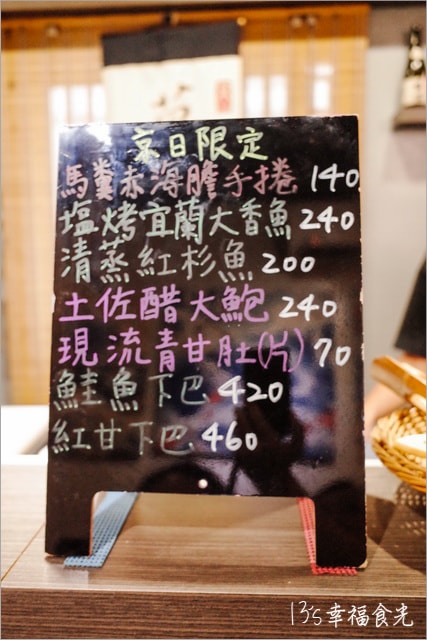 京日限定
馬糞赤海膽手捲 140
塩烤宜蘭大香魚 240
清蒸紅杉魚 200
土佐醋大鮑 240
現流青甘肚(片) 70
鮭魚下巴 420
紅甘下巴 460
13's幸福食光